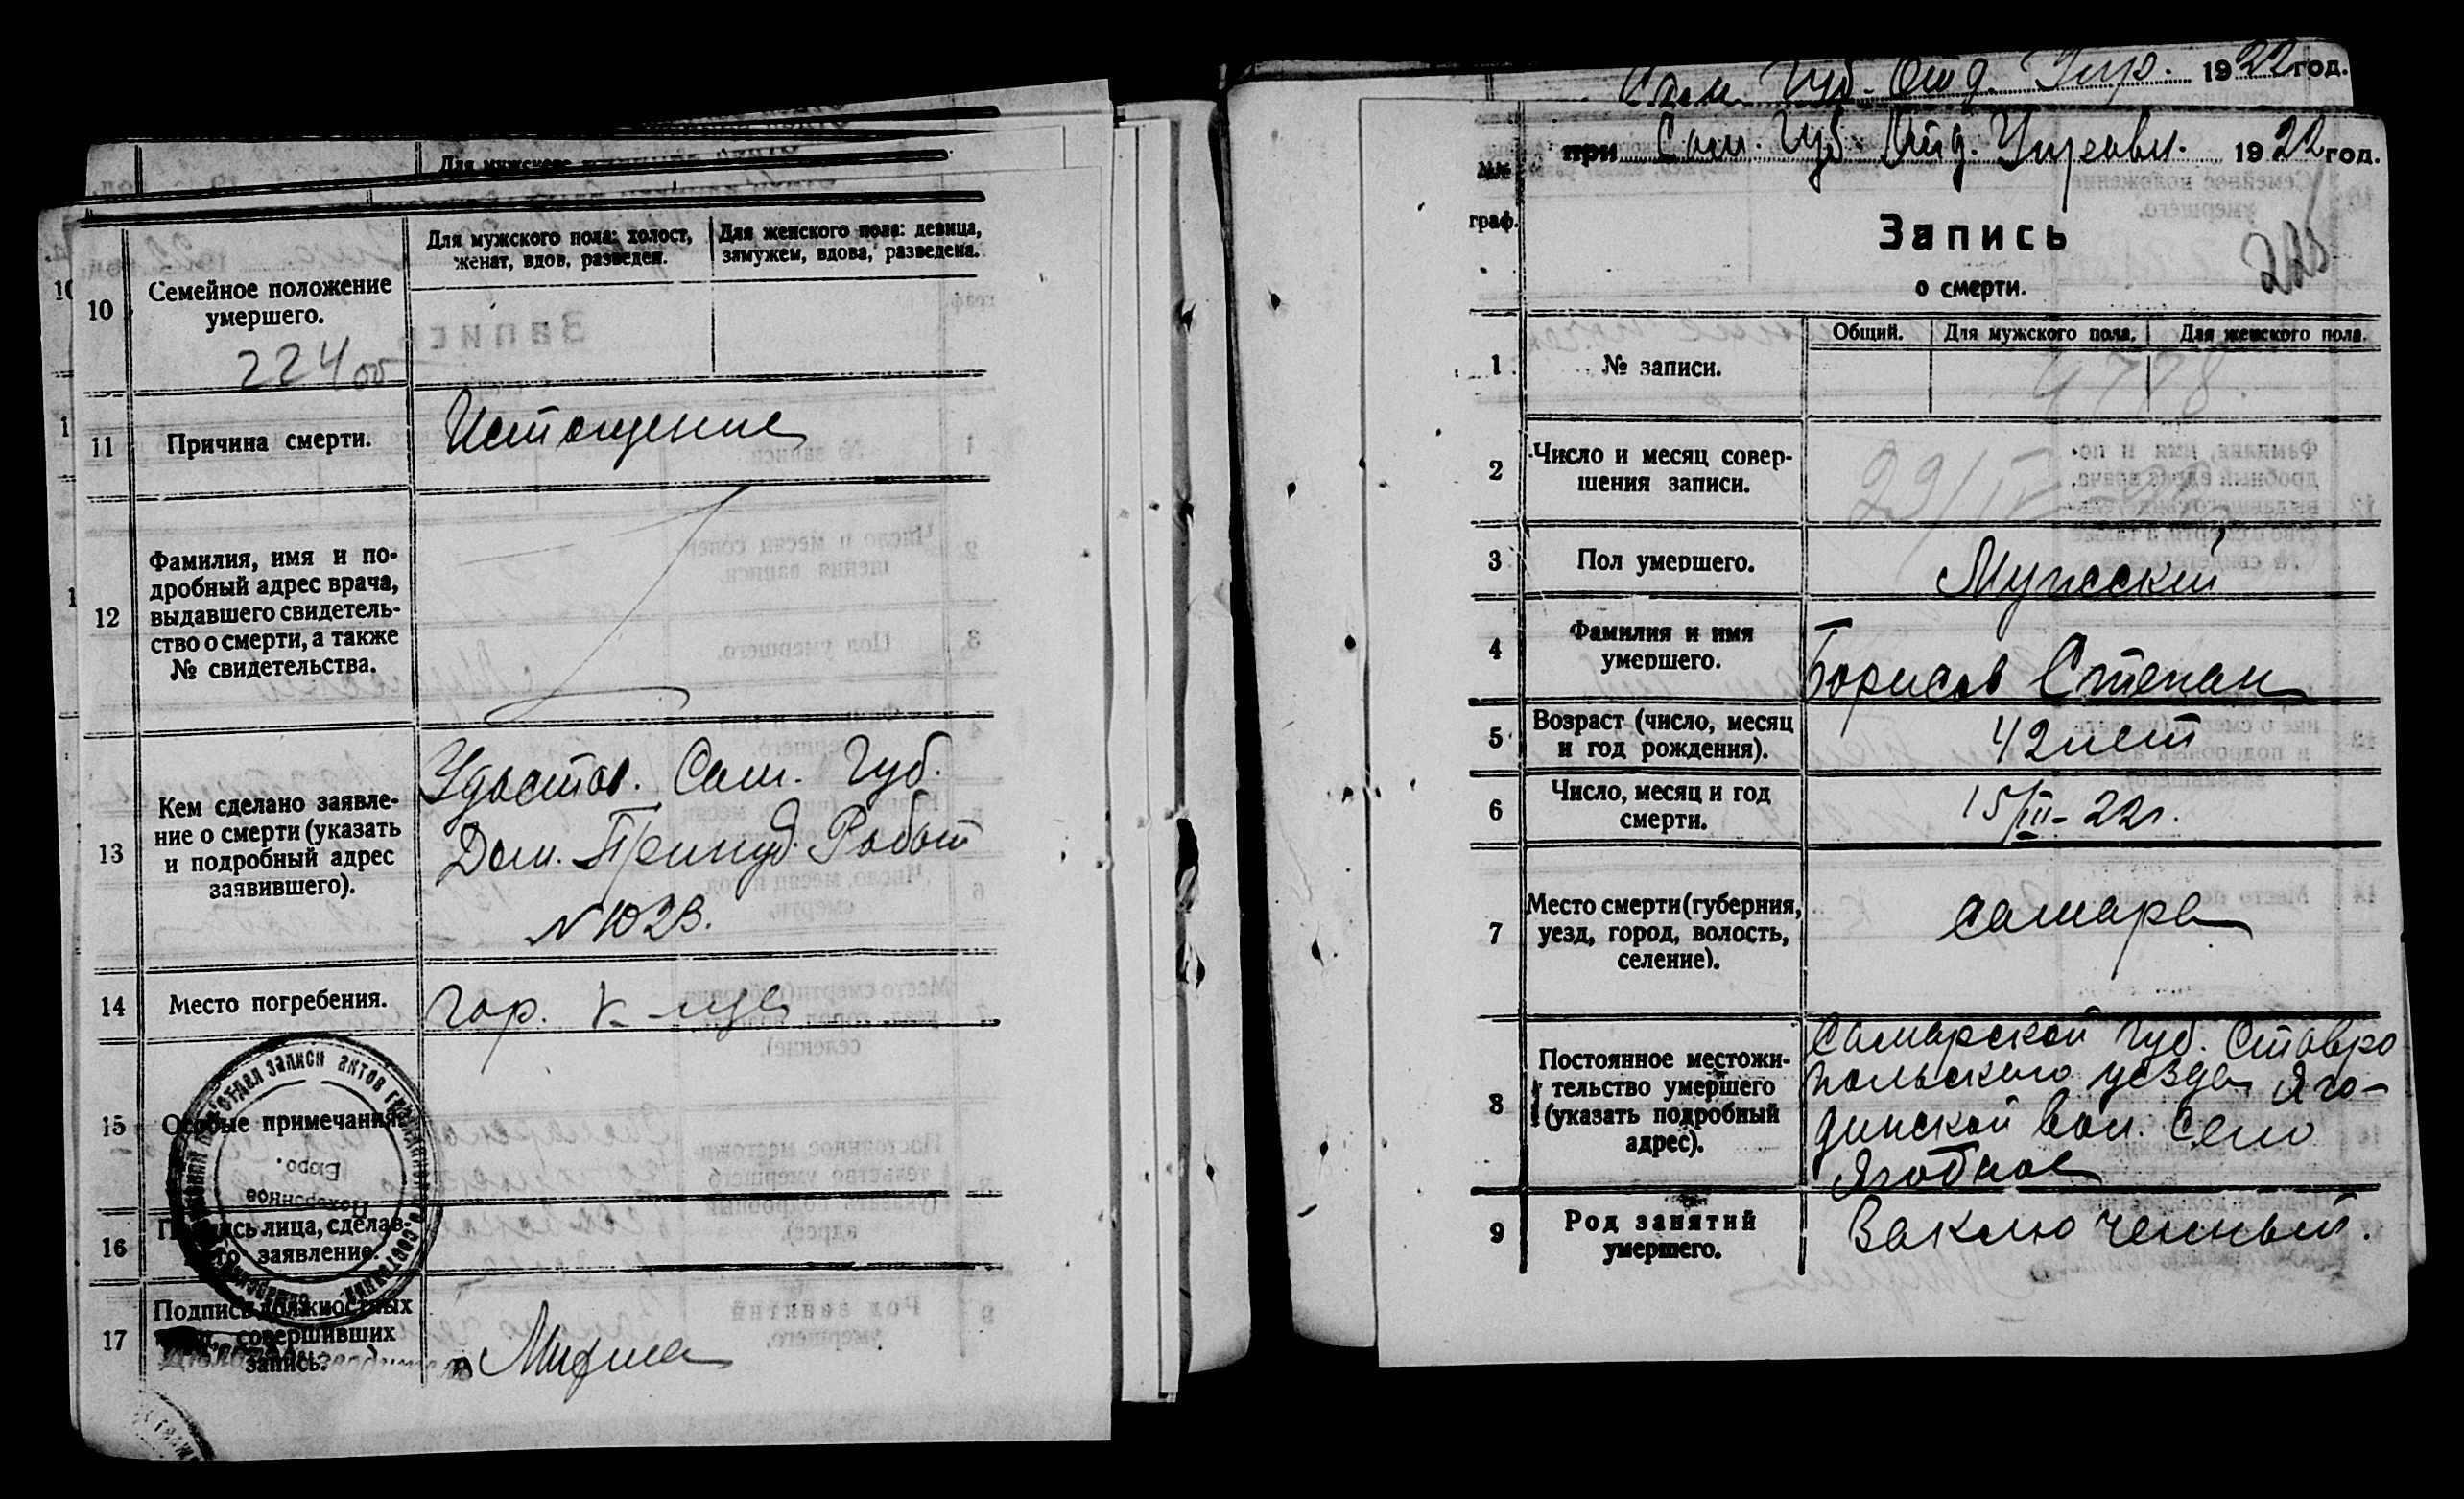 Для мужского
10
Семейное положение
умершего.
Для мужского пола: холост,
женат, вдов, разведен.
Для женского пола: девица,
замужем, вдова, разведена.
224
11
Причина смерти.
Истощение
12
Фамилия, имя и по-
дробный адрес врача,
выдавшего свидетель-
ство о смерти, а также
№ свидетельства.
13
Кем сделано заявле-
ние о смерти (указать
и подробный адрес
заявившего).
Удостов. Сам. Губ.
Дом. Принуд. Работ
14
Место погребения.
гор. к-ще
15
Особые примечания.
отдел записи актов гражданского состояния
Похоронное
Бюро.
16
Подпись лица, сделав-
заявление.
17
Подпись должностных
совершивших
запись.
Сам. Губ. Отд. Упр. 1922 год.
№№
граф.
при Сам. Губ. Отд. Управл. 1922 год.
Запись
о смерти.
1
№ записи.
Общий.
Для мужского пола.
Для женского пола.
2
Число и месяц совер-
шения записи.
29/IV
3
Пол умершего.
Мужской
4
Фамилия и имя
умершего.
Борисов Степан
5
Возраст (число, месяц
и год рождения).
42 лет
6
Число, месяц и год
смерти.
15/III-22г.
7
Место смерти (губерния,
уезд, город, волость,
селение).
Самара
8
Постоянное местожи-
тельство умершего
(указать подробный
адрес).
Самарской Губ. Ставро
польского уезда Яго-
динской вол. Село
Ягодное
9
Род занятий
умершего.
Заключенный.